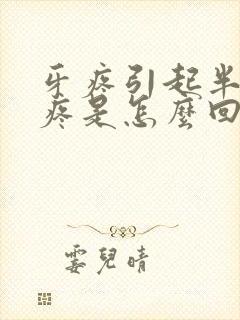 牙疼引起半
疼是怎麼回
霎兒晴